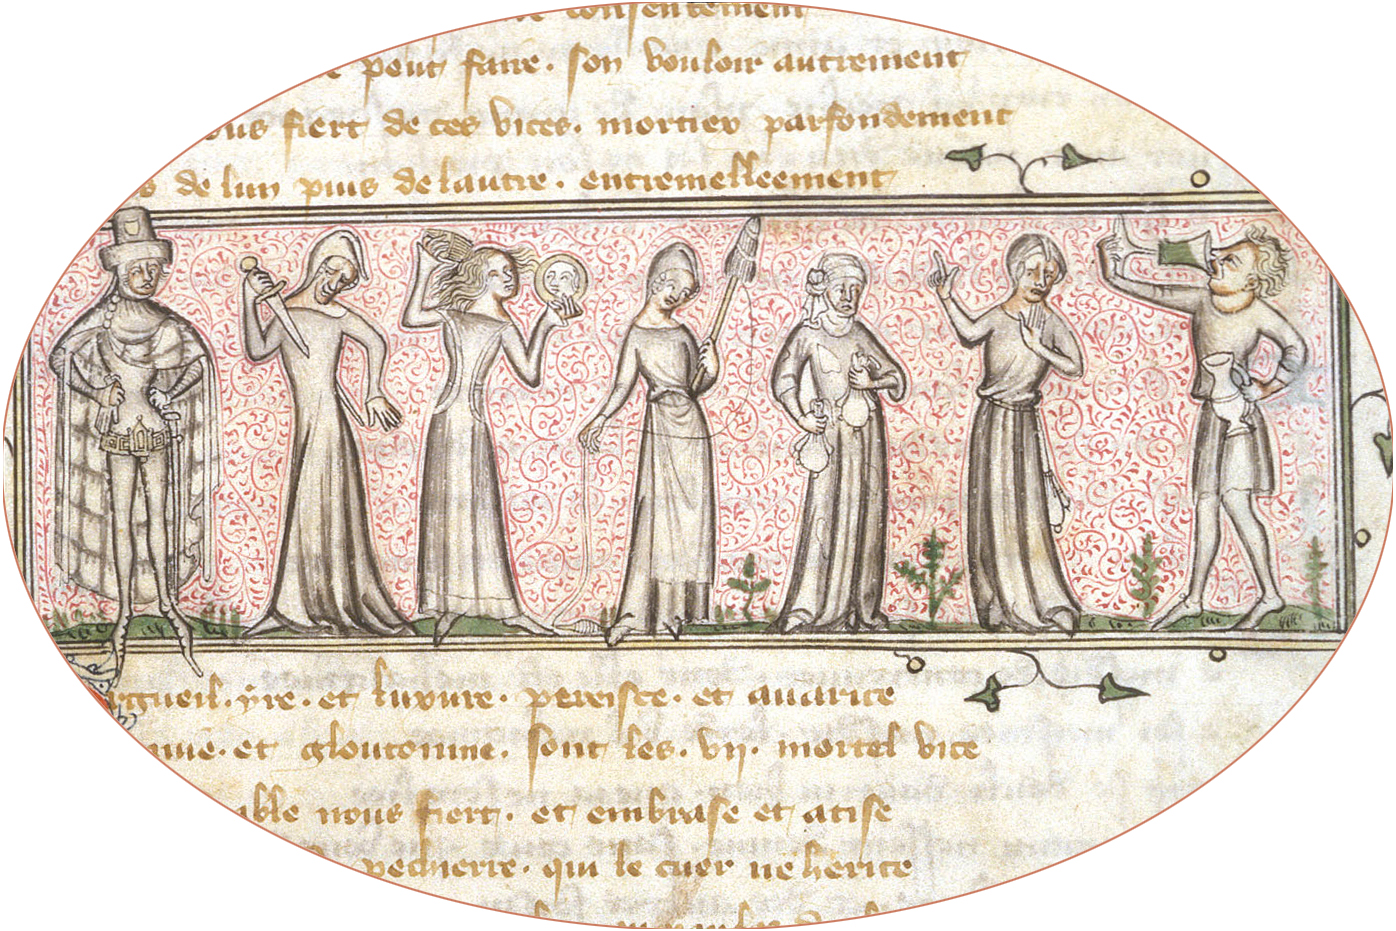 consentement
peut faire. son vouloir autrement
fiert de ces vices. mortiex parfondement
de lun puis de lautre. entremelleement
yre. et luxure. pereisce. et auarice
et gloutonnie. sont les. vij. mortel vice
nous fiert. et embrase et atise
pecherre. qui le cuer ne herice